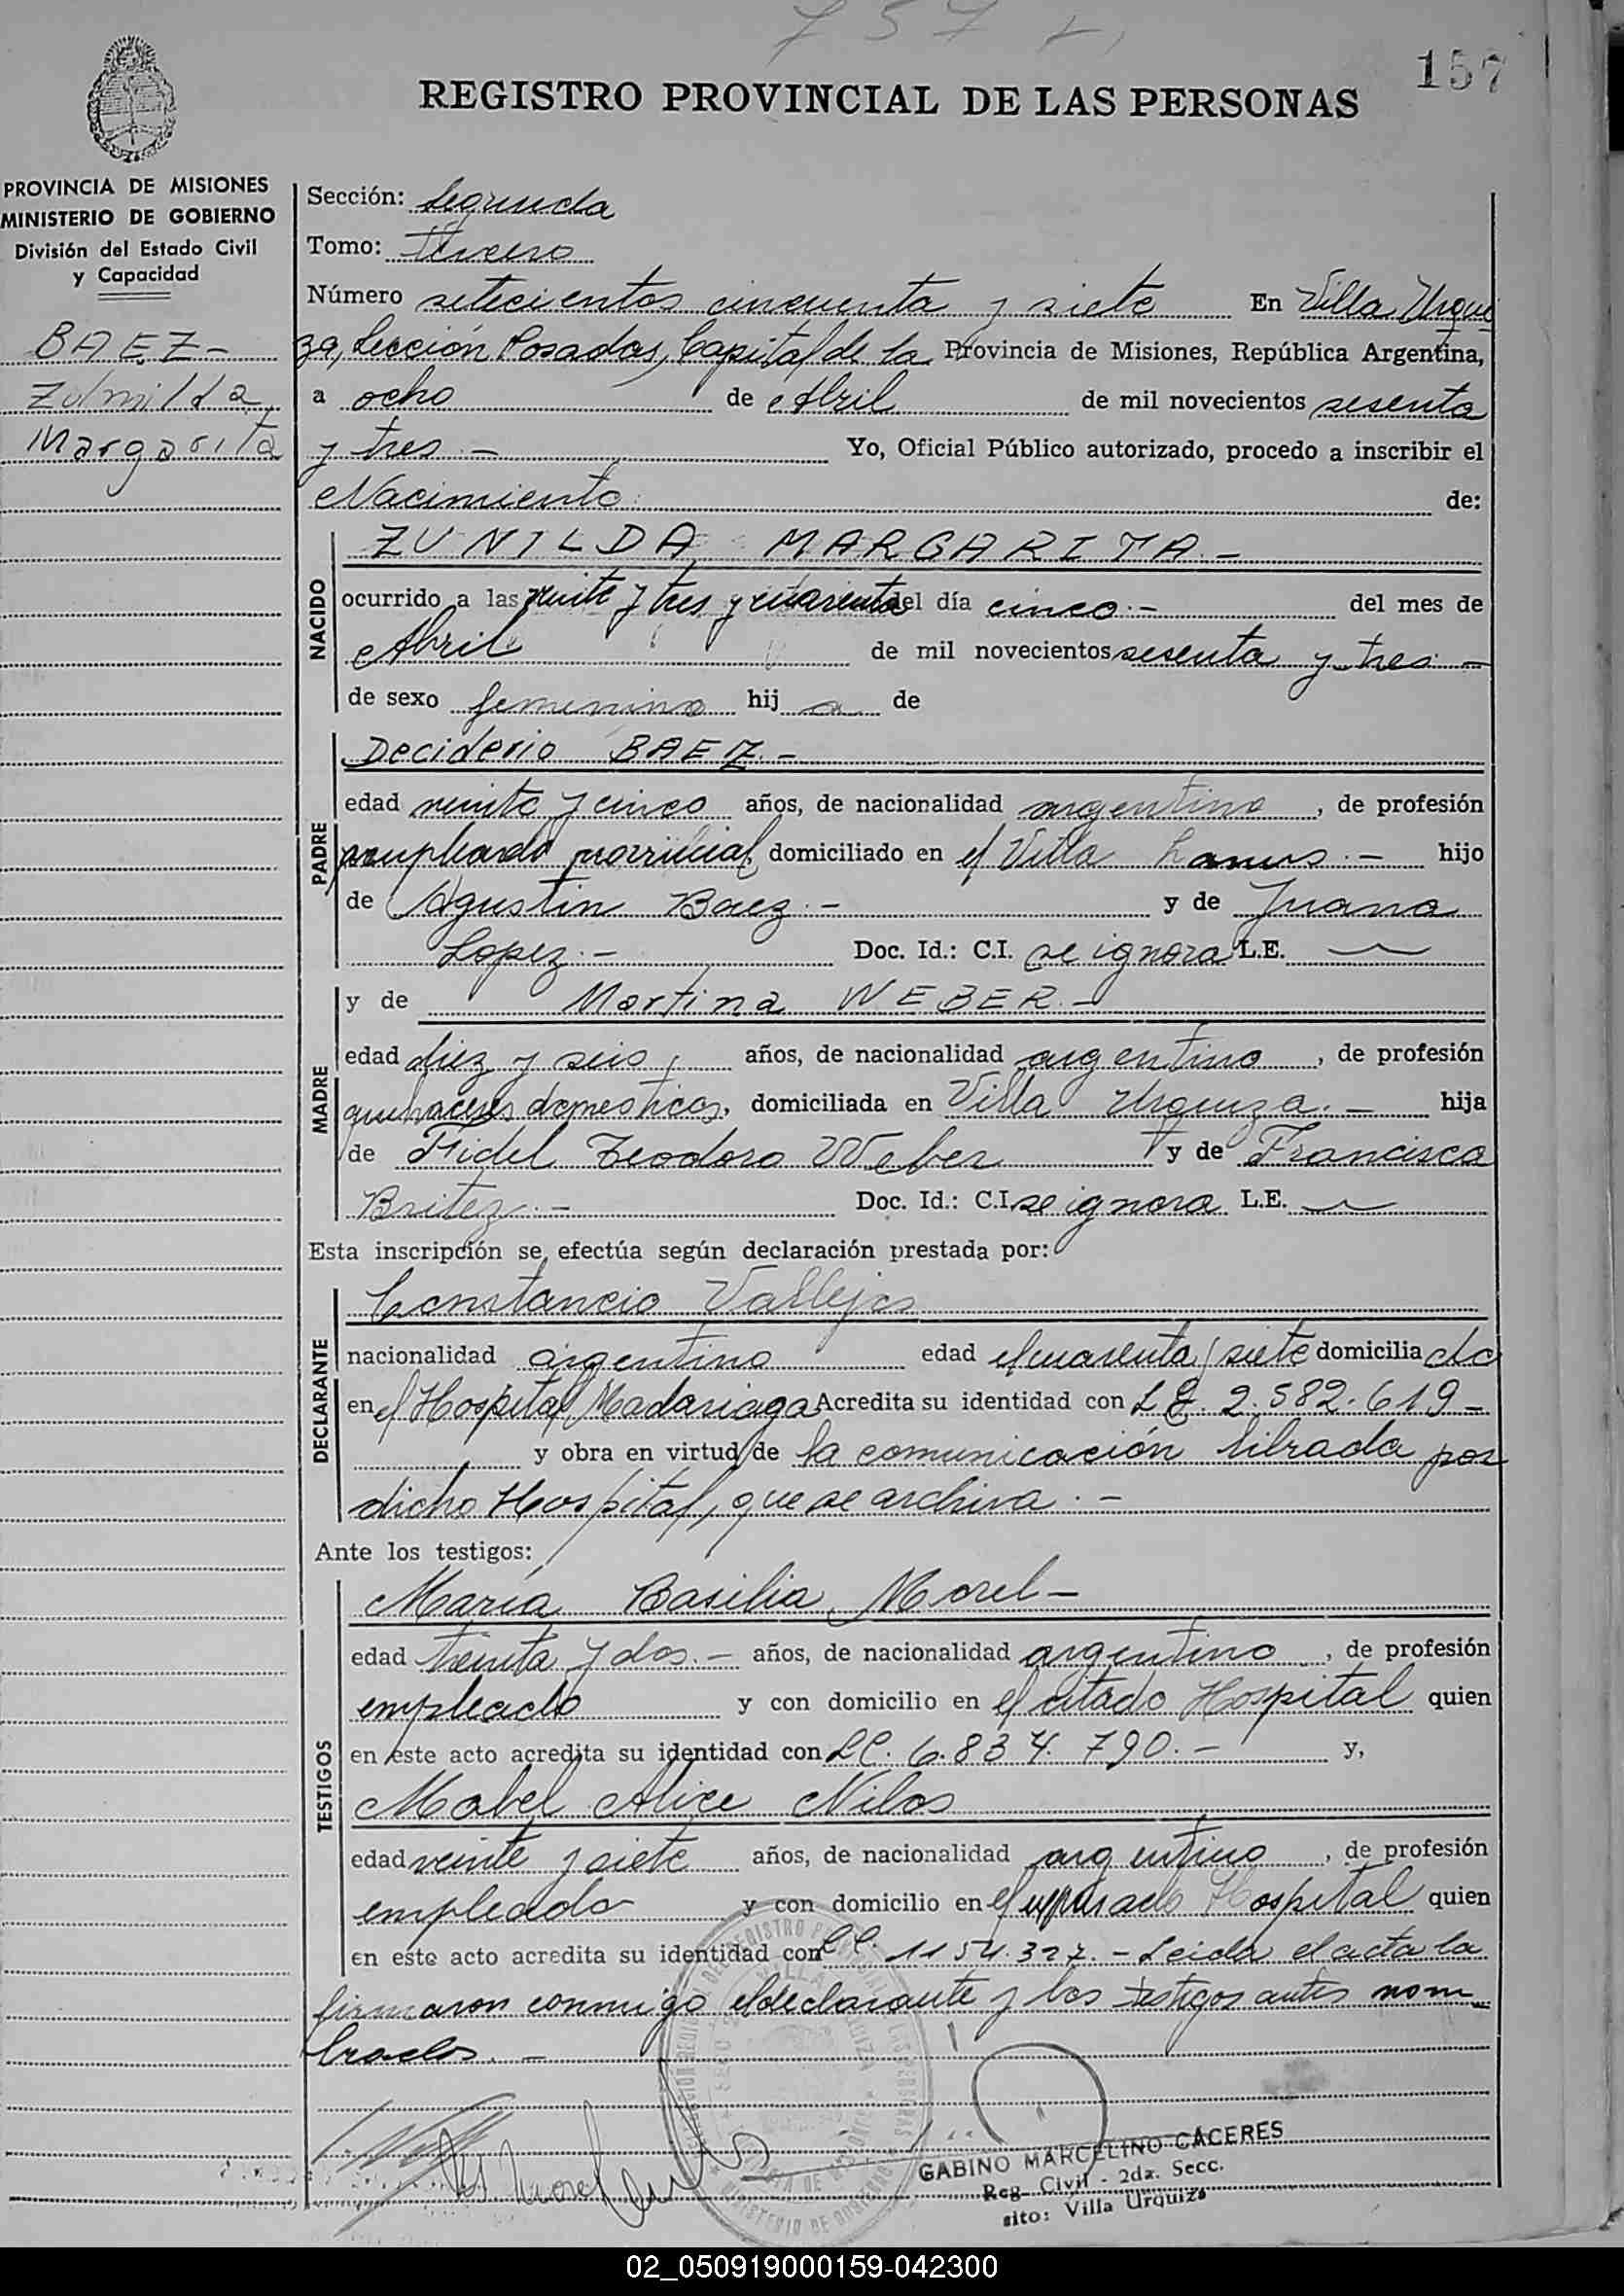 757
157
REGISTRO PROVINCIAL DE LAS PERSONAS
PROVINCIA DE MISIONES
MINISTERIO DE GOBIERNO
División del Estado Civil
y Capacidad
BAEZ-
Zulmilda
Margarita
Sección: Segunda
Tomo: Tercero
Número setecientos cincuenta y siete En Villa Urqui
za, Sección Posadas, Capital de la Provincia de Misiones, República Argentina,
a ocho de Abril de mil novecientos sesenta
y tres.- Yo, Oficial Público autorizado, procedo a inscribir el
Nacimiento de:
NACIDO
ZUNILDA MARGARITA.-
ocurrido a las veinte y tres y cuarenta del día cinco.- del mes de
Abril de mil novecientos sesenta y tres.-
de sexo femenino hij a de
PADRE
Deciderio BAEZ.-
edad veinte y cinco años, de nacionalidad argentino, de profesión
empleado provincial, domiciliado en Villa Lanus.- hijo
de Agustin Baez.- y de Juana
Lopez.- Doc. Id.: C.I. se ignora L.E. —
MADRE
y de Martina WEBER.-
edad diez y seis, años, de nacionalidad argentino, de profesión
quehaceres domesticos, domiciliada en Villa Urquiza.- hija
de Fidel Teodoro Weber y de Francisca
Britez.- Doc. Id.: C.I. se ignora L.E. —
Esta inscripción se efectúa según declaración prestada por:
DECLARANTE
Constancio Vallejos
nacionalidad argentino edad cuarenta y siete domicilia do
en el Hospital Madariaga Acredita su identidad con L.E. 2.582.619-
y obra en virtud de la comunicación librada por
dicho Hospital, que se archiva.-
Ante los testigos:
TESTIGOS
María Basilia Morel-
edad treinta y dos.- años, de nacionalidad argentino, de profesión
empleado y con domicilio en el citado Hospital quien
en este acto acredita su identidad con L.C. 6.834.790.- y,
Mabel Alice Nilos
edad veinte y siete años, de nacionalidad argentino, de profesión
empleada y con domicilio en el expresado Hospital quien
en este acto acredita su identidad con L.C. 1154.327.- Leida el acta la
firmaron conmigo el declarante y los testigos antes nom
brados.-
GABINO MARCELINO CACERES
Reg. Civil - 2da. Secc.
sito: Villa Urquiza
02_050919000159-042300